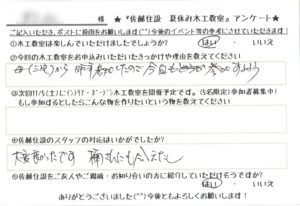 様 ★『佐藤住設 夏休み木工教室』アンケート★
ご記入いただき、ポストに投函をお願いします(^^)今後のイベント等の参考にさせていただきます!
①木工教室は楽しんでいただけましたでしょうか? はい ・ いいえ
②今回の木工教室をお申込みいただいたきっかけや理由を教えてください
から
③次回11/5(土)に 木工教室を開催予定です。(5名限定)参加者募集中!
もし参加するとしたらこんな物を作りたいという物を教えてください
④佐藤住設のスタッフの対応はいかがでしたか?
大変良かったです
⑤佐藤住設をご友人やご親戚・お知り合いの方に紹介していただけそうですか?
はい ・ いいえ
ありがとうございました(^^)今後ともよろしくお願いします!